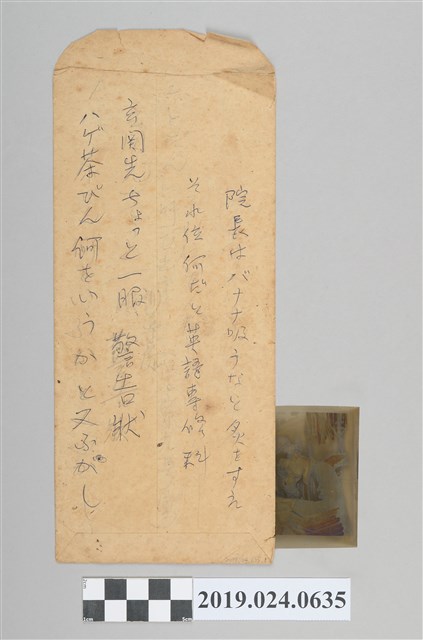 院長はバナナ吸うなと灸をすえ
それ位何だと英語専修科
玄関先ちょっと一服警告状
ハゲ茶びん何をいうかと又ふかし
2019.024.0635